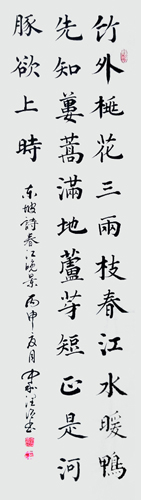 竹外桃花三兩枝春江水暖鴨
先知蔞蒿滿地蘆芽短正是河
豚欲上時
东坡詩春江晚景丙申夏月